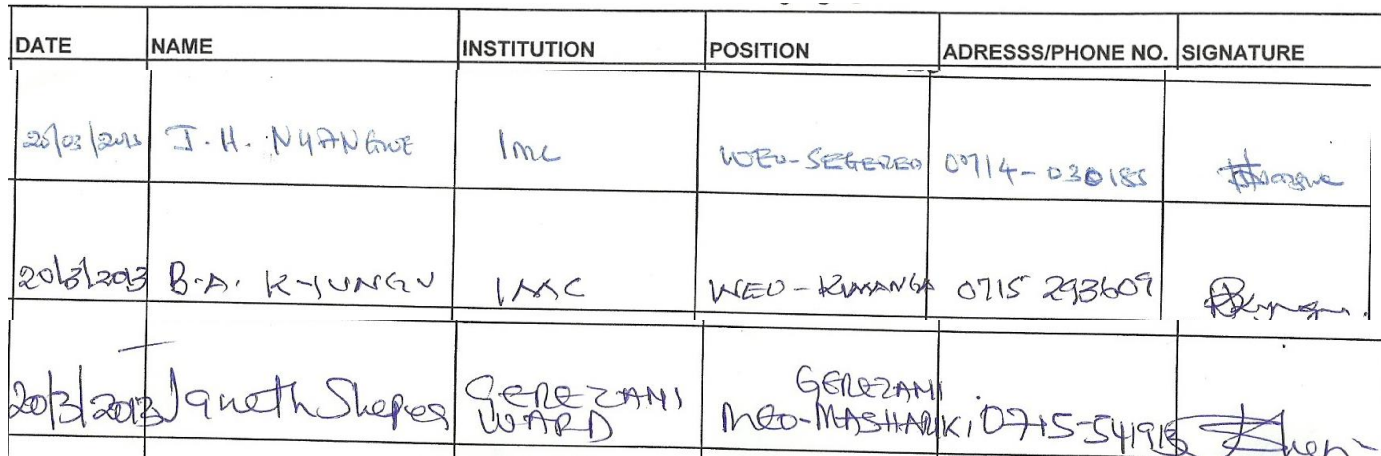 DATE NAME INSTITUTION POSITION ADRESSS/PHONE NO. SIGNATURE
20/03/2013 J.H. NYANGWE IMC WEO-SEGEREA 0714-030185
20/3/2013 B.A. KYUNGU IMC WEO-KIMANGA 0715 293609
20/3/2013 Janeth GEREZANI WARD GEREZANI MEO-MASHARIKI 0715-541915